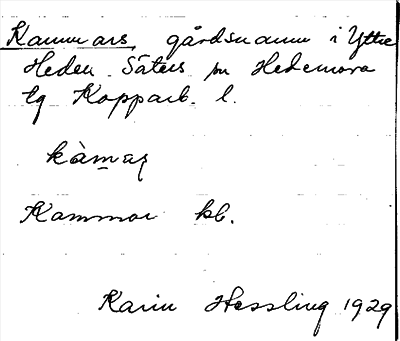 Kammars, gårdsnamn i Yttre
Heden Säters sn Hedemora
tg Kopparb. l.
kàmaș
Kammor kb.
Karin Hessling 1929